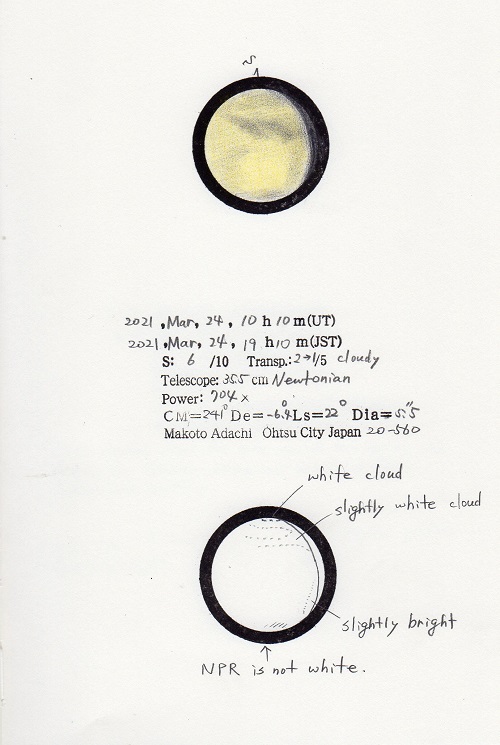 S
2021 , Mar, 24 , 10 h 10 m(UT)
2021 , Mar, 24 , 19 h10 m(JST)
S: 6 /10 Transp.: 2→1/5 cloudy
Telescope: 355 cm Newtonian
Power: 704 ×
CM=241° De=-6.9° Ls=22° Dia=5."5
Makoto Adachi Ohtsu City Japan 20-560
white cloud
slightly white cloud
slightly bright
NPR is not white.